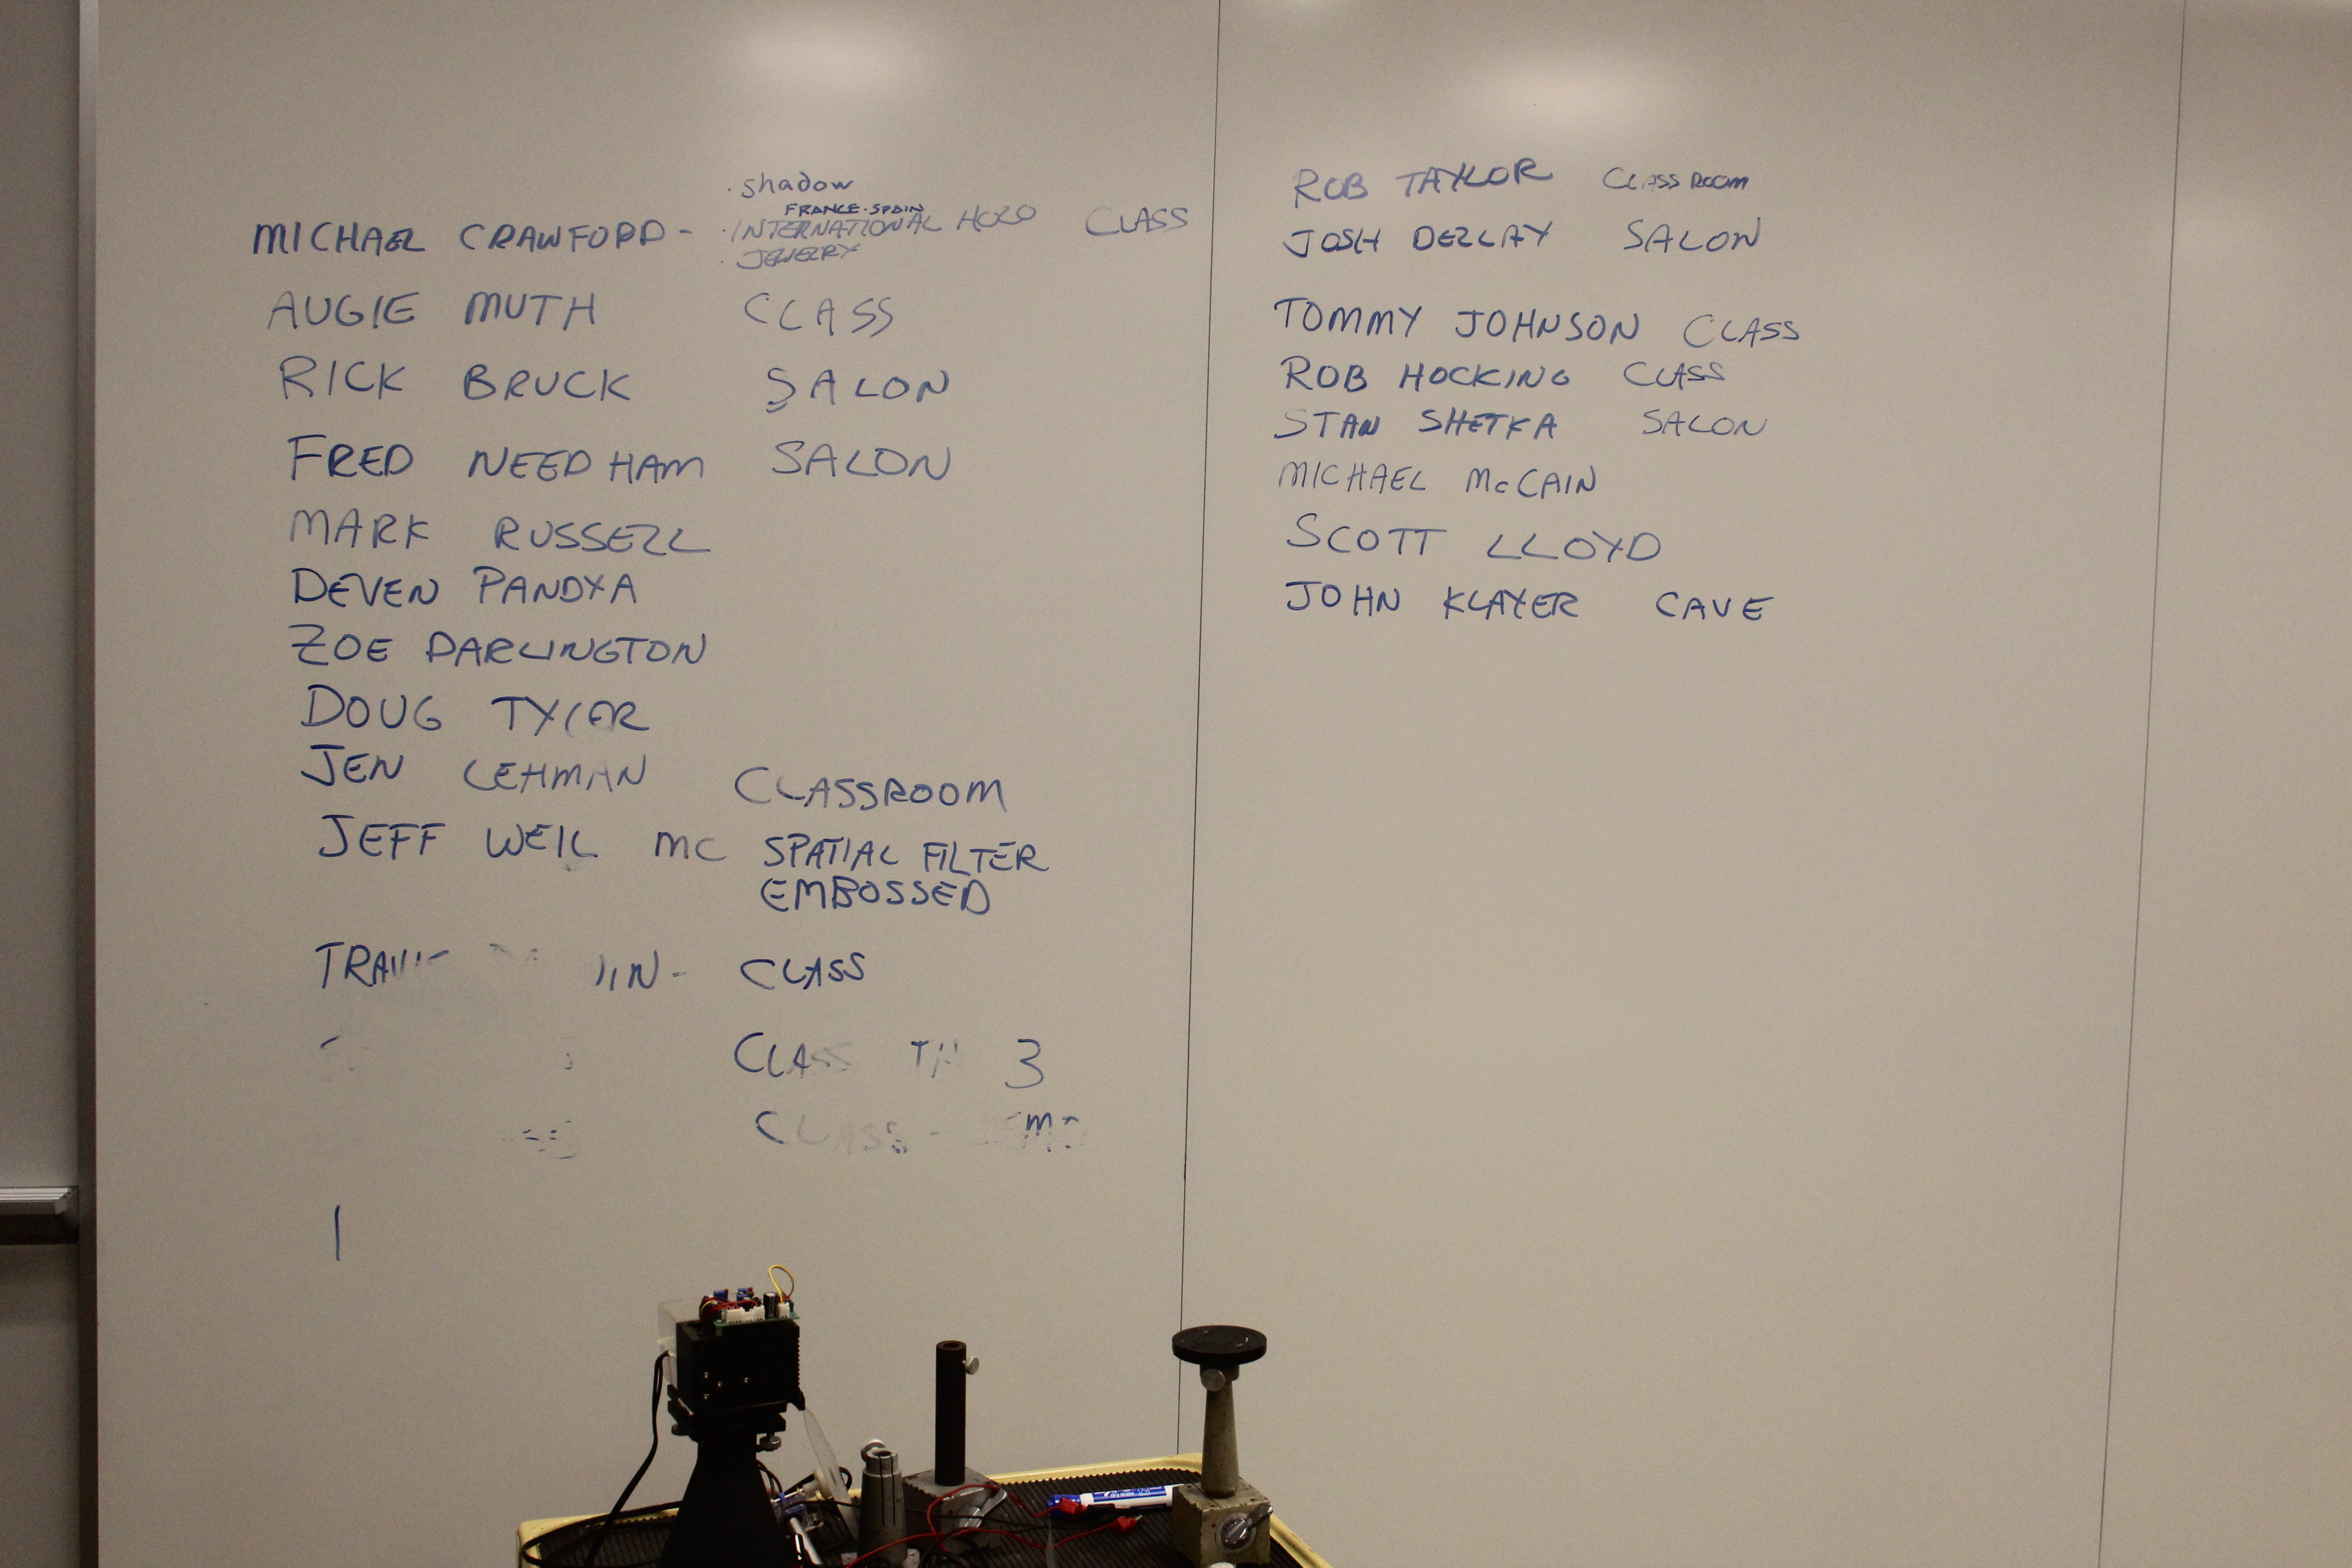 · shadow
FRANCE · SPAIN
MICHAEL CRAWFORD - · INTERNATIONAL HOLO CLASS
· JEWELRY
AUGIE MUTH CLASS
RICK BRUCK SALON
FRED NEEDHAM SALON
MARK RUSSELL
DEVEN PANDYA
ZOE DARLINGTON
DOUG TYLER
JEN LEHMAN CLASSROOM
JEFF WEIL MC SPATIAL FILTER
EMBOSSED
- CLASS
CLASS 3
CLASS -
ROB TAYLOR CLASSROOM
JOSH DEZLAY SALON
TOMMY JOHNSON CLASS
ROB HOCKING CLASS
STAN SHETKA SALON
MICHAEL McCAIN
SCOTT LLOYD
JOHN KLAYER CAVE